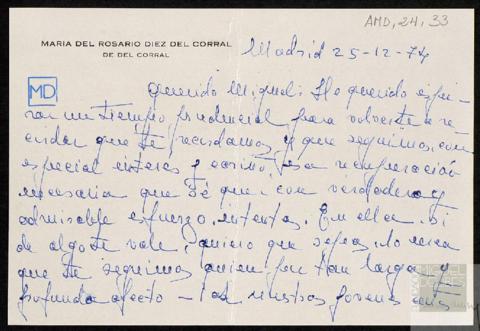 AMD, 24, 33
MARIA DEL ROSARIO DIEZ DEL CORRAL
DE DEL CORRAL
Madrid 25-12-74
MD
Querido Miguel: He querido espe-
rar un tiempo prudencial para volverte a re-
cordar que te recordamos, y que seguimos, con
especial interes y cariño, esa recuperación
necesaria que sé que, con verdadero y
admirable esfuerzo, intentas. En ella, si
de algo te vale, quiero que sepas lo cerca
que te seguimos quien por tan largo y
profundo afecto – las nuestras